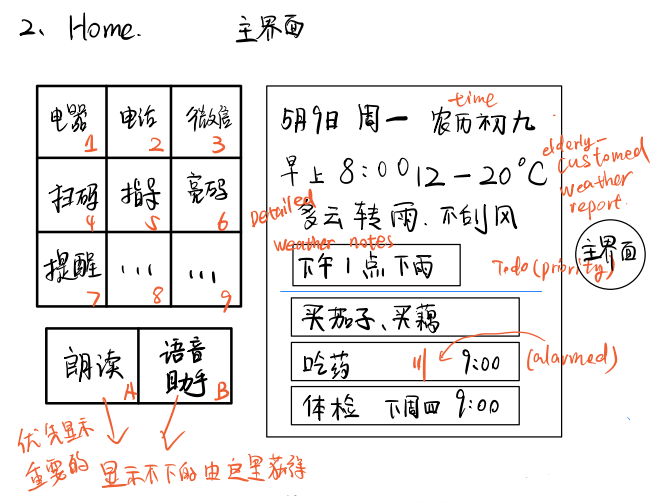 2、Home. 主界面
电器 1
电话 2
微信 3
扫码 4
指导 5
亮码 6
提醒 7
... 8
... 9
朗读 A
语音助手 B
优先显示
重要的 显示不下的由这里获得
time
5月9日 周一 农历初九
早上 8:00 12-20°C
elderly-
customed
weather
report.
Detailed
weather notes
多云转雨.不刮风
下午1点下雨
Todo(priority)
主界面
买茄子、买藕
吃药 9:00
(alarmed)
体检 下周四 9:00